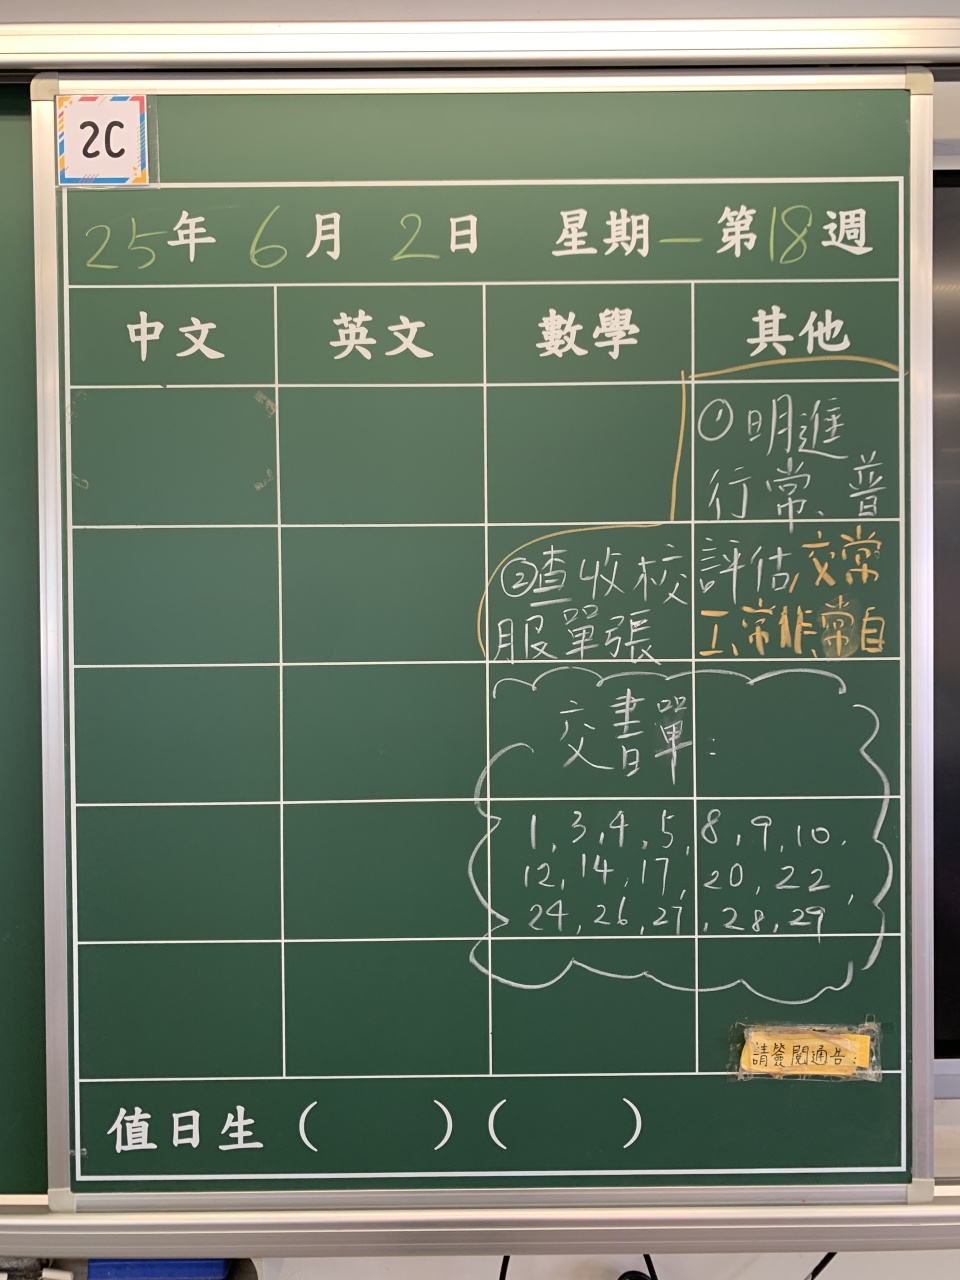 2C
25年 6月 2日 星期一 第18週
中文 英文 數學 其他
①明進
行常、普
評估,交常
工、常非常自
②查收校
服單張
交書單:
1, 3, 4, 5, 8, 9, 10,
12, 14, 17, 20, 22,
24, 26, 27, 28, 29
請簽閱通告:
值日生 ( ) ( )